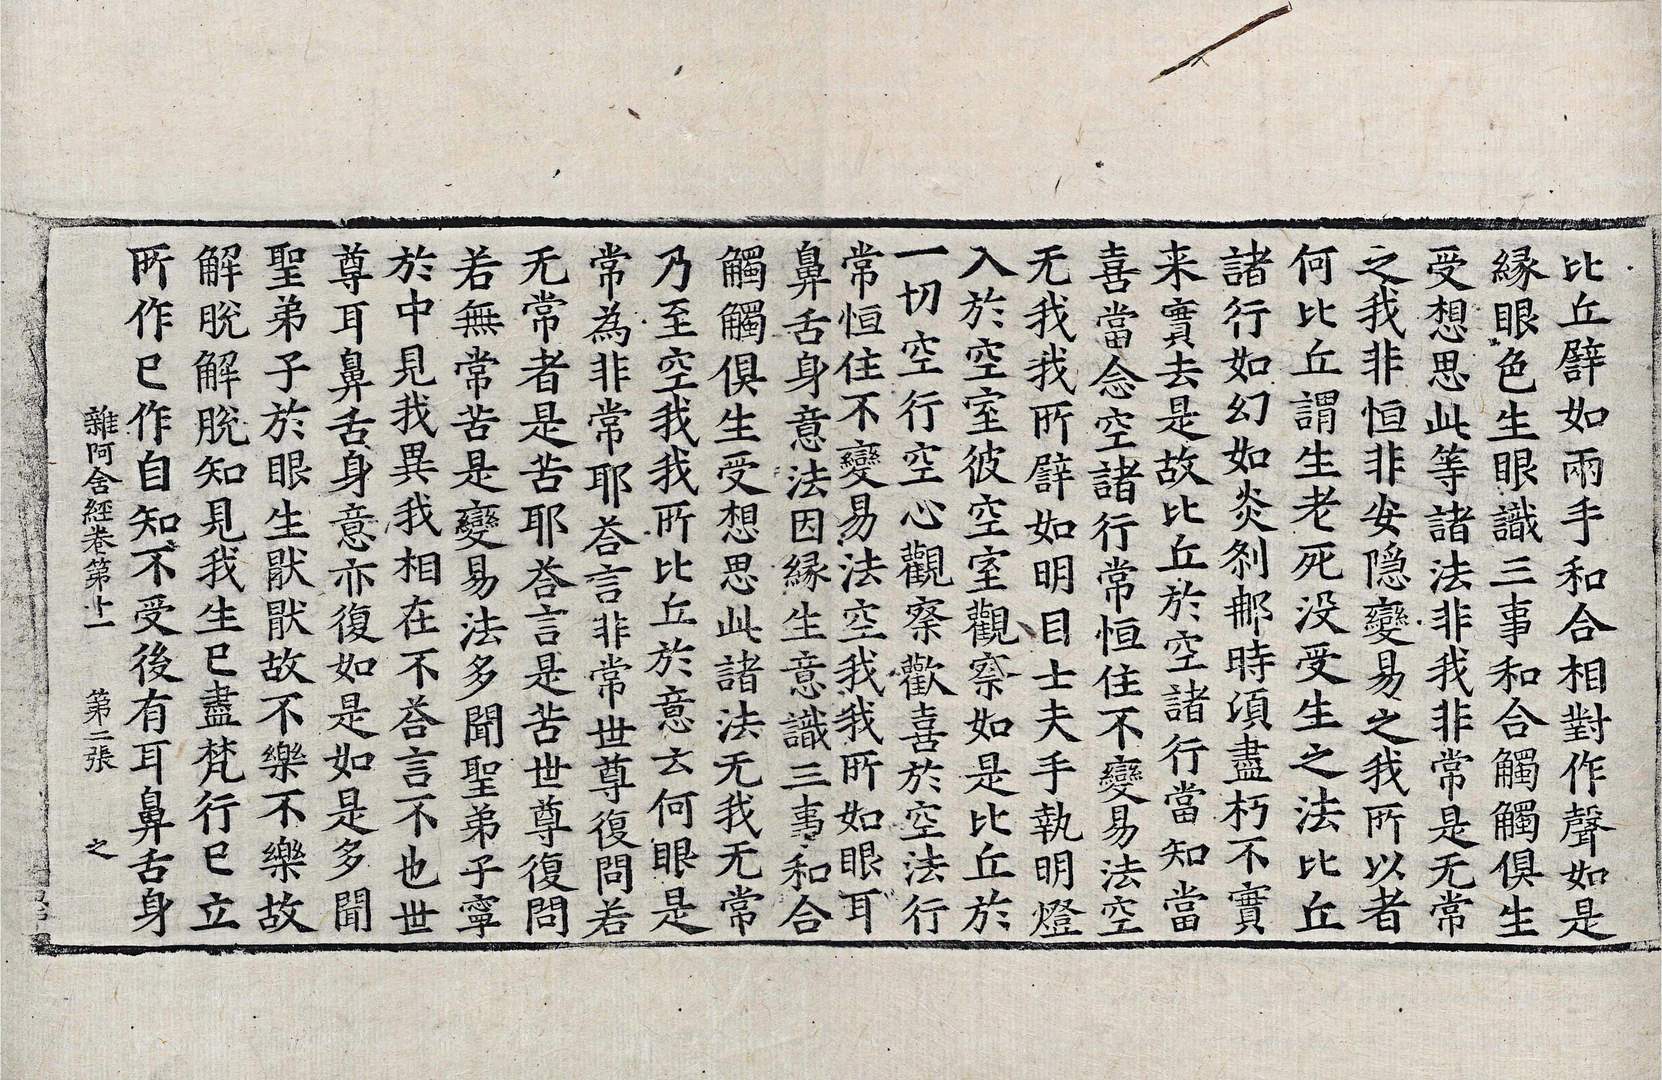 比丘譬如兩手和合相對作聲如是
縁眼色生眼識三事和合觸觸俱生
受想思此等諸法非我非常是无常
之我非恒非安隱變易之我所以者
何比丘謂生老死没受生之法比丘
諸行如幻如炎刹那時湏盡朽不實
来實去是故比丘於空諸行當知當
喜當念空諸行常恒住不變易法空
无我我所譬如明目士夫手執明燈
入於空室彼空室觀察如是比丘於
一切空行空心觀察歡喜於空法行
常恒住不變易法空我我所如眼耳
鼻舌身意法因縁生意識三事和合
觸觸俱生受想思此諸法无我无常
乃至空我我所比丘於意云何眼是
常為非常耶荅言非常世尊復問若
无常者是苦耶荅言是苦世尊復問
若無常苦是變易法多聞聖弟子寧
於中見我異我相在不荅言不也世
尊耳鼻舌身意亦復如是如是多聞
聖弟子於眼生猒猒故不樂不樂故
解脫解脫知見我生已盡梵行已立
所作已作自知不受後有耳鼻舌身
雜阿含經卷第十一　第二張　之